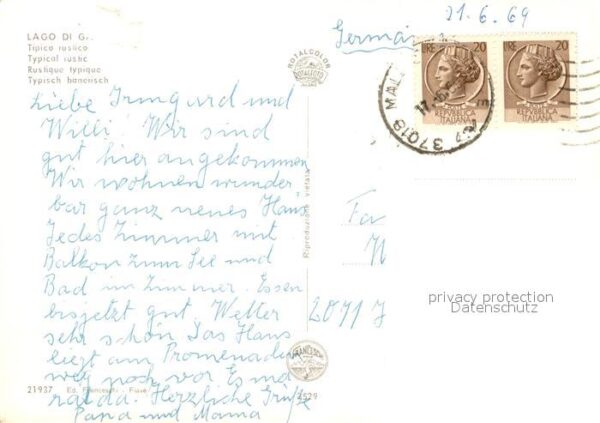 21.6.69
Germania
LAGO DI G
Tipico rustico
Typical rustic
Rustique typique
Typisch bäuerisch
ROTALCOLOR
ROTALFOTO
LIRE 20
REPUBBLICA
ITALIANA
LIRE 20
REPUBBLICA
ITALIANA
37018 MAL
Liebe Irmgard und
Willi! Wir sind
gut hier angekommen
Wir wohnen wunder
bar ganz neues Haus
Jedes Zimmer mit
Balkon zum See und
Bad im Zimmer. Essen
bisjetzt gut. Wetter
sehr schön. Das Haus
liegt am Promenaden
weg noch vor Esme
ralda. Herzliche Grüße
Papa und Mama
Riproduzione vietata
Fa
2071 J
privacy protection
Datenschutz
21937
2529